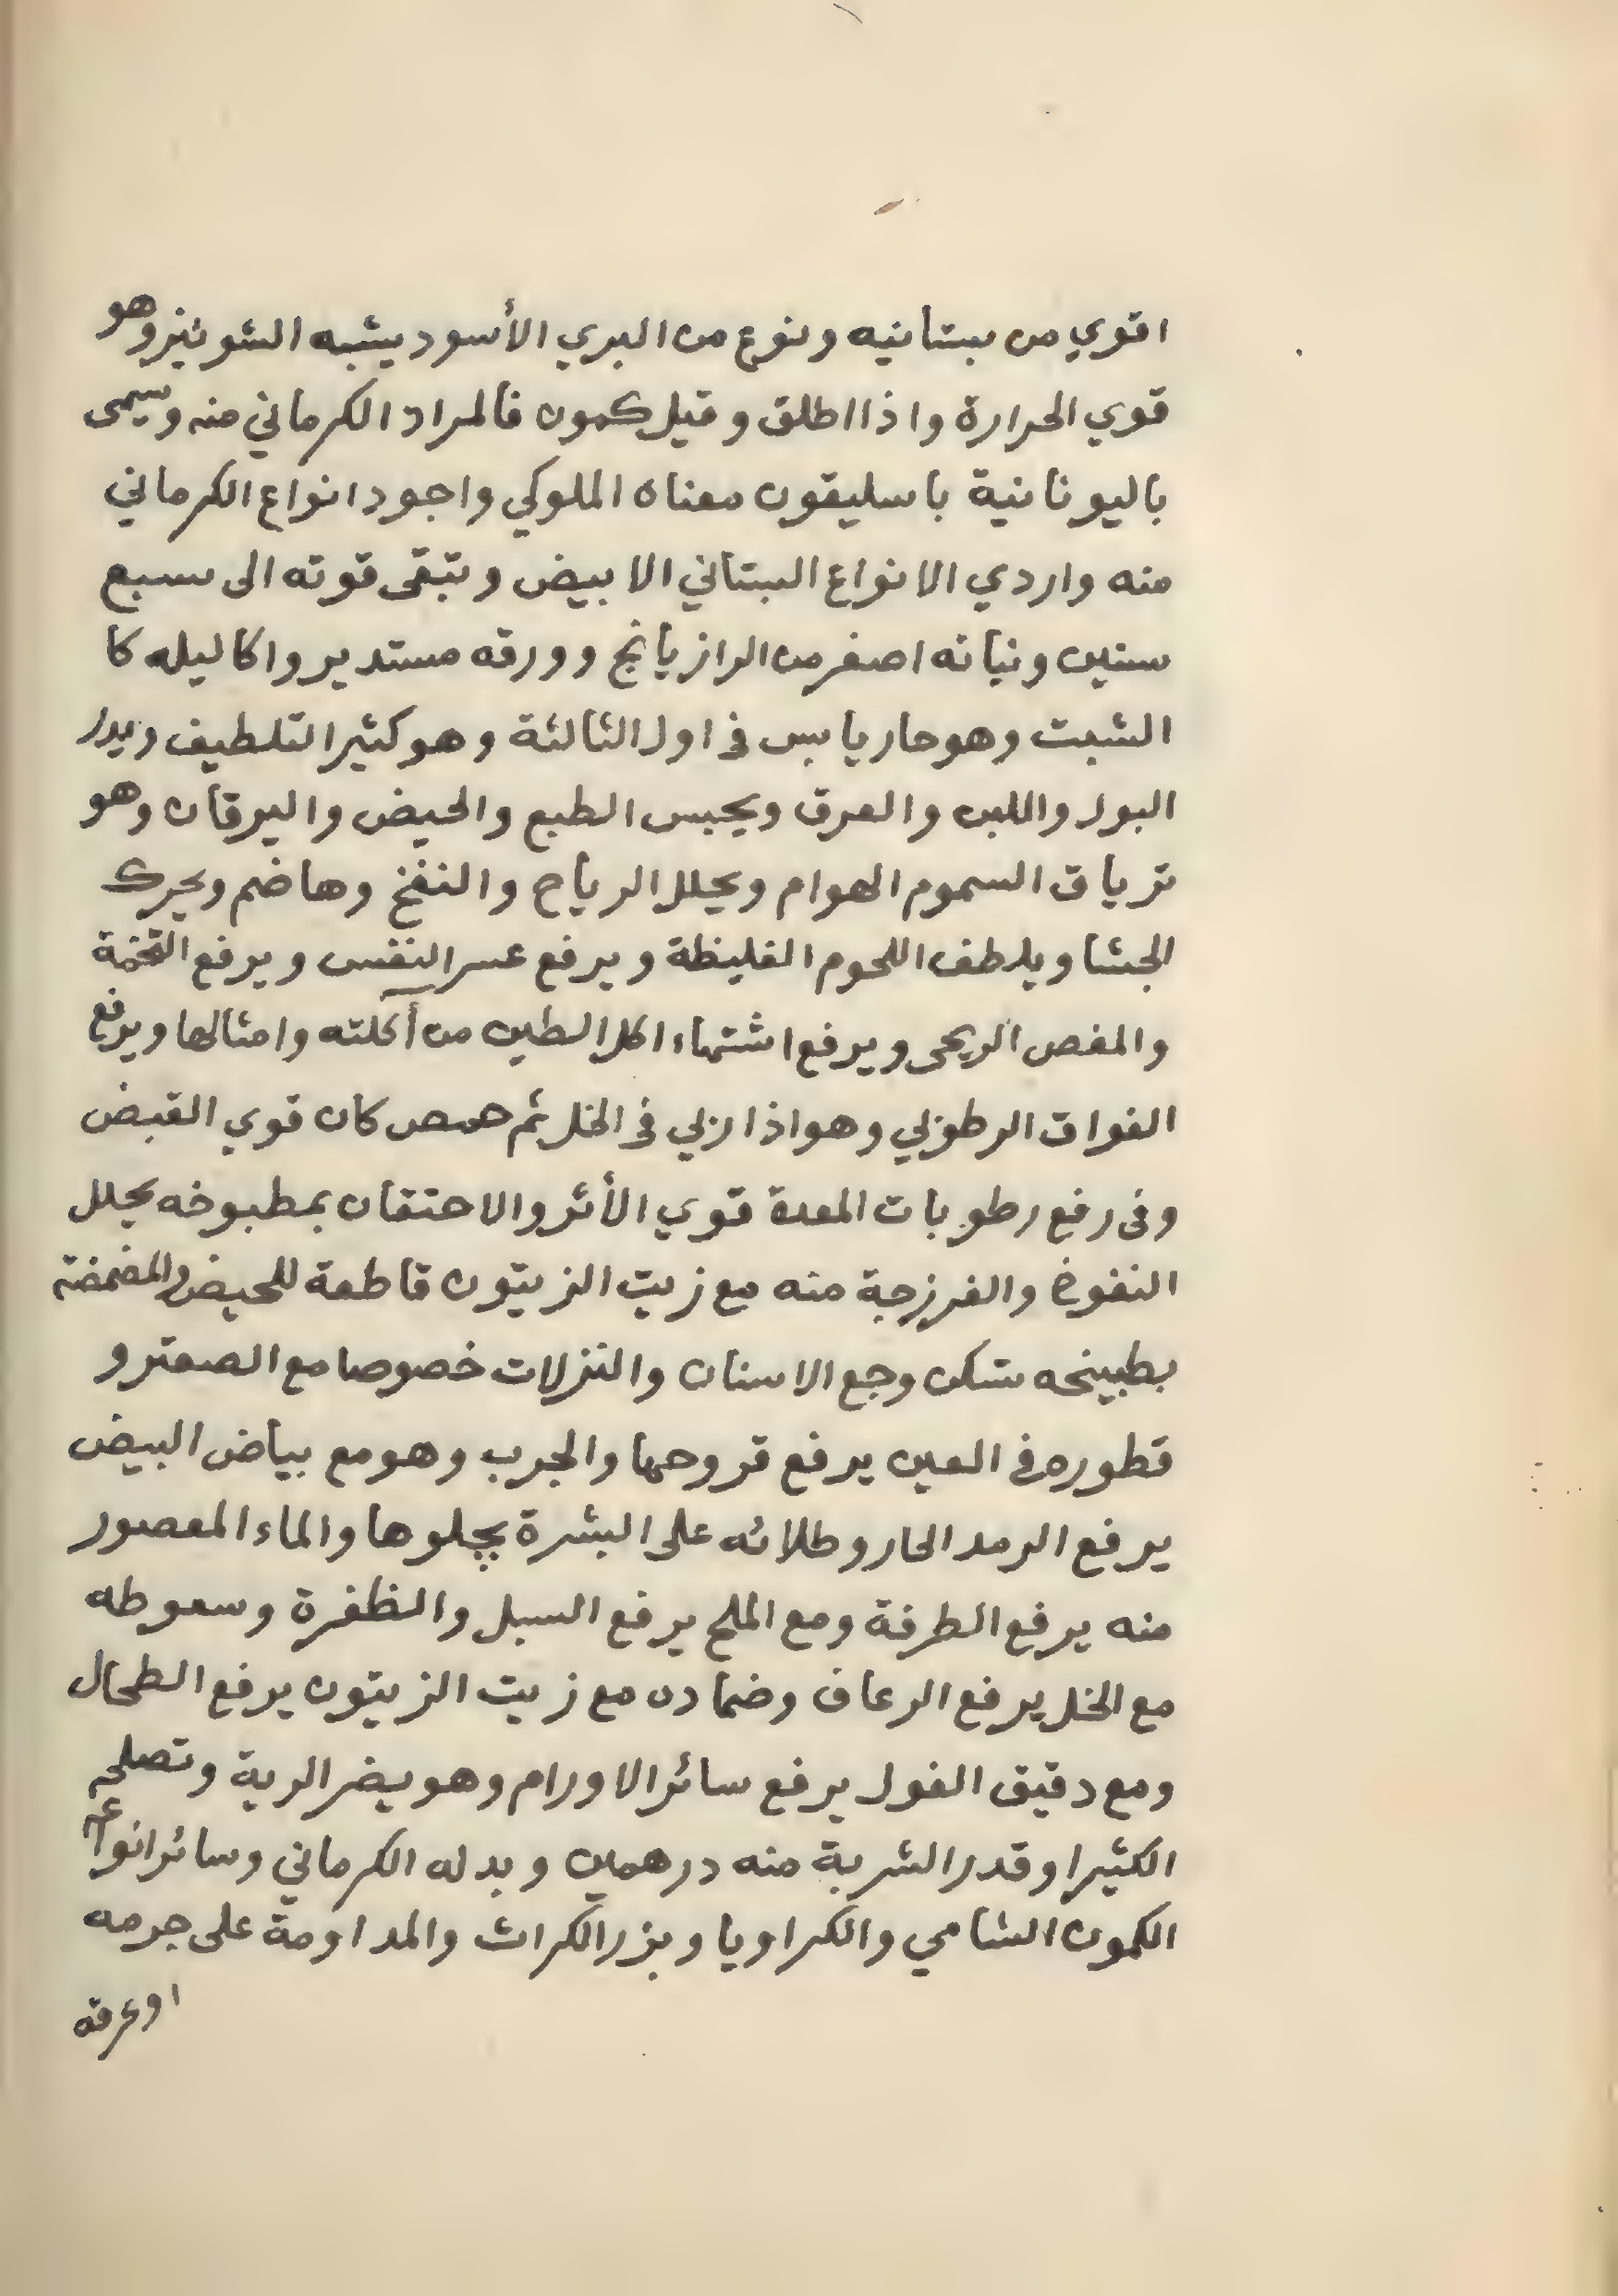 اقوي من بستانيه ونوع من البري الأسود يشبه الشونيز وهو
قوي الحرارة واذا اطلق وقيل كمون فالمراد الكرماني منه ويسمى
باليونانية باسليقون معناه الملوكي واجود انواع الكرماني
منه واردي الانواع البستاني الابيض وتبقى قوته الى سبع
سنين ونباته اصغر من الرازيانج وورقه مستدير واكاليله كا
الشبت وهو حار يابس فى اول الثالثة وهو كثير التلطيف ويدر
البول واللبن والعرق ويحبس الطبع والحيض واليرقان وهو
ترياق السموم الهوام ويحلل الرياح والنفخ وهاضم ويحرك
الجشا ويلطف اللحوم الغليظة ويرفع عسر النفس ويرفع التخمة
والمغص الريحى ويرفع اشتهاء اكل الطين من أكلته وامثالها ويرفع
الفواق الرطوبي وهو اذا ربي فى الخل ثم حمص كان قوي القبض
وفى رفع رطوبات المعدة قوي الأثر والاحتقان بمطبوخه يحلل
النفوخ والفرزجة منه مع زيت الزيتون قاطعة للحيض والمضمضة
بطبيخه تسكن وجع الاسنان والنزلات خصوصا مع الصعتر و
قطوره فى العين يرفع قروحها والجرب وهو مع بياض البيض
يرفع الرمد الحار وطلائه على البشرة يجلوها والماء المعصور
منه يرفع الطرفة ومع الملح يرفع السبل والظفرة وسعوطه
مع الخل يرفع الرعاف وضماده مع زيت الزيتون يرفع الطحال
ومع دقيق الفول يرفع سائر الاورام وهو يضر الرية وتصلحه
الكثيرا وقدر الشربة منه درهمين وبدله الكرماني وسائر انواعه
الكمون الشامي والكراويا وبزر الكراث والمداومة على جرمه
او عرقه